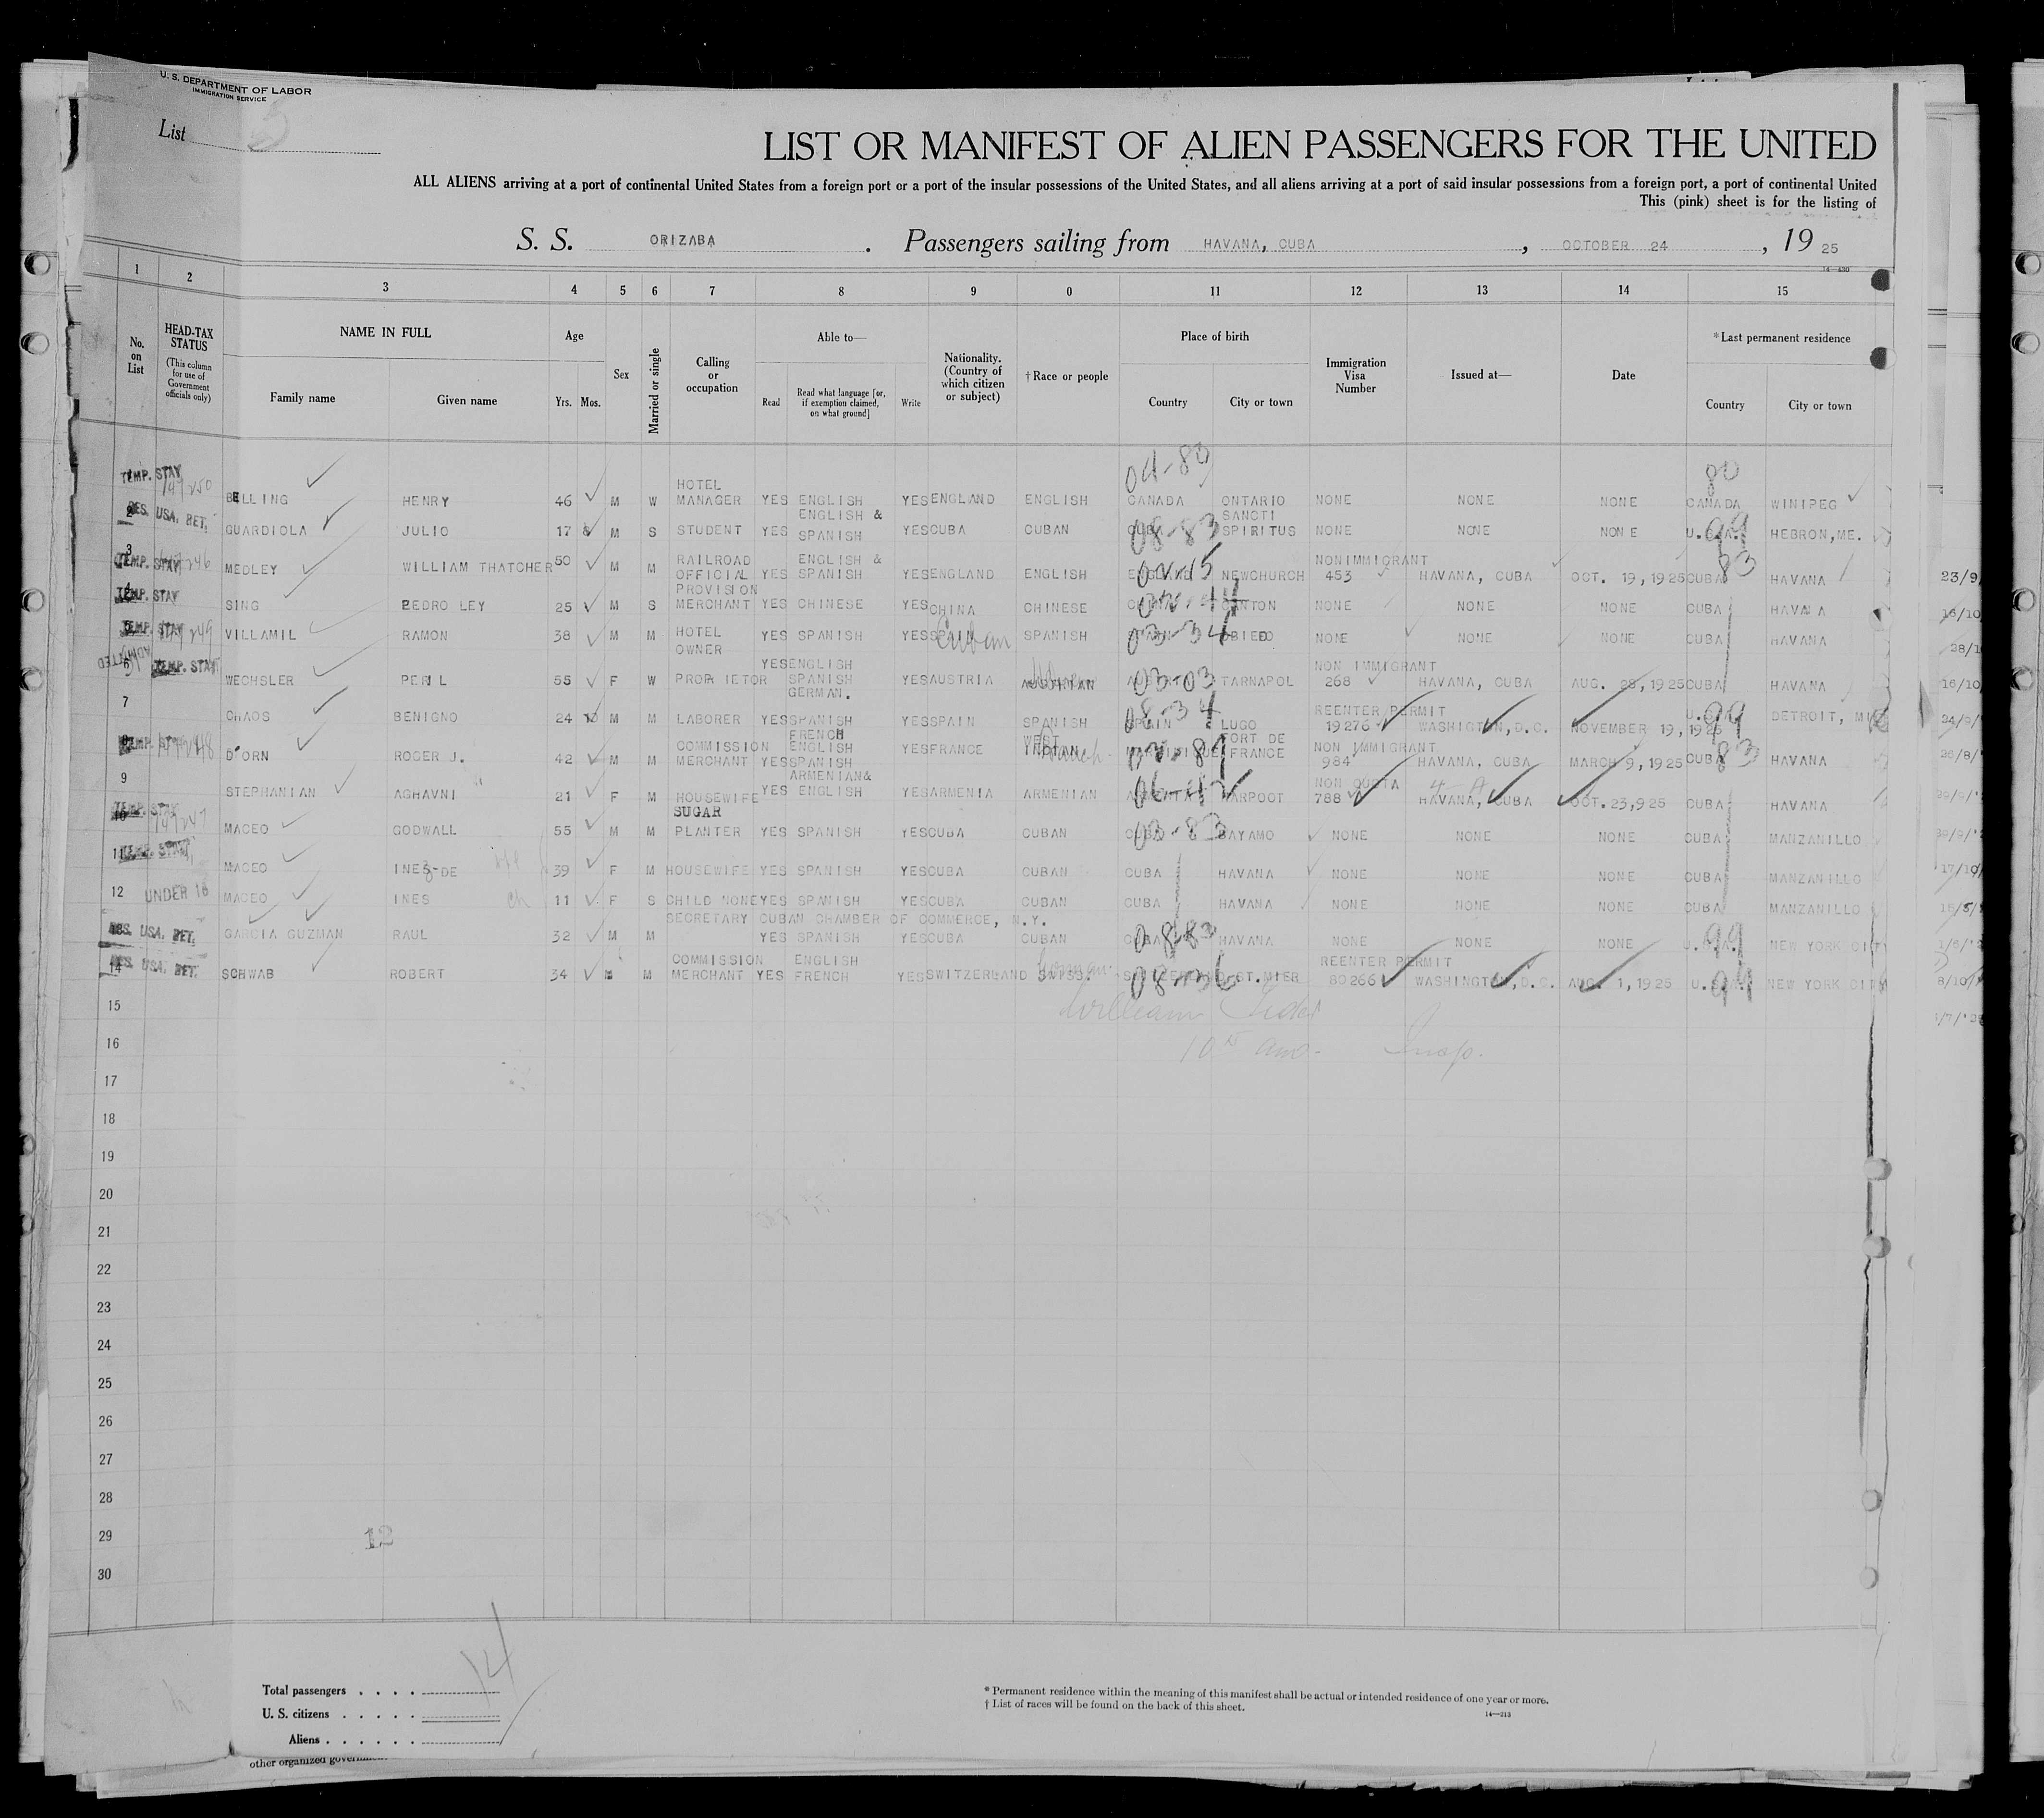 U. S. DEPARTMENT OF LABOR
IMMIGRATION SERVICE
List 5
LIST OR MANIFEST OF ALIEN PASSENGERS FOR THE UNITED
ALL ALIENS arriving at a port of continental United States from a foreign port or a port of the insular possessions of the United States, and all aliens arriving at a port of said insular possessions from a foreign port, a port of continental United
This (pink) sheet is for the listing of
S. S. ORIZABA. Passengers sailing from HAVANA, CUBA, OCTOBER 24, 19 25
14—430
1 2 3 4 5 6 7 8 9 0 11 12 13 14 15
No. on List HEAD-TAX STATUS (This column for use of Government officials only) NAME IN FULL Family name Given name Age Yrs. Mos. Sex Married or single Calling or occupation Able to— Read Read what language [or, if exemption claimed, on what ground] Write Nationality. (Country of which citizen or subject) † Race or people Place of birth Country City or town Immigration Visa Number Issued at— Date * Last permanent residence Country City or town
TEMP. STAY 147250 BELLING HENRY 46 M W HOTEL MANAGER YES ENGLISH YES ENGLAND ENGLISH 04-80 CANADA ONTARIO NONE NONE NONE 80 CANADA WINIPEG
2 RES. USA. RET. GUARDIOLA JULIO 17 M S STUDENT YES ENGLISH & SPANISH YES CUBA CUBAN 08-83 CUBA SANCTI SPIRITUS NONE NONE NONE 99 U.S.A. HEBRON, ME.
3 TEMP. STAY MEDLEY WILLIAM THATCHER 50 M M RAILROAD OFFICIAL YES ENGLISH & SPANISH YES ENGLAND ENGLISH ENGLAND NEWCHURCH NONIMMIGRANT 453 HAVANA, CUBA OCT. 19, 1925 CUBA 83 HAVANA 23/9
4 TEMP. STAY SING PEDRO LEY 25 M S PROVISION MERCHANT YES CHINESE YES CHINA CHINESE CANTON NONE NONE NONE CUBA HAVANA
5 TEMP. STAY VILLAMIL RAMON 38 M M HOTEL OWNER YES SPANISH YES SPAIN Cuban SPANISH 03-34 OBIEDO NONE NONE NONE CUBA HAVANA 28/1
6 ADMITTED TEMP. STAY WECHSLER PERIL 55 F W PROPRIETOR YES ENGLISH SPANISH GERMAN. YES AUSTRIA AUSTRIAN 03-03 TARNAPOL NON IMMIGRANT 268 HAVANA, CUBA AUG. 28, 1925 CUBA HAVANA 16/10
7 CHAOS BENIGNO 24 M M LABORER YES SPANISH YES SPAIN SPANISH 08-34 SPAIN LUGO REENTER PERMIT 19276 WASHIGTON, D.C. NOVEMBER 19, 1925 U.S.A. 99 DETROIT, 24/9/
8 TEMP. STAY 147248 D'ORN ROGER J. 42 M M COMMISSION MERCHANT YES FRENCH ENGLISH SPANISH YES FRANCE WEST INDIAN French FORT DE FRANCE NON IMMIGRANT 984 HAVANA, CUBA MARCH 9, 1925 CUBA 83 HAVANA 26/8/
9 STEPHANIAN AGHAVNI 21 F M HOUSEWIFE YES ARMENIAN & ENGLISH YES ARMENIA ARMENIAN 06-42 HARPOOT NON QUOTA 788 HAVANA, CUBA OCT. 23, 925 CUBA HAVANA
10 TEMP. STAY 147247 MACEO GODWALL 55 M M SUGAR PLANTER YES SPANISH YES CUBA CUBAN 03-83 CUBA BAYAMO NONE NONE NONE CUBA MANZANILLO
11 TEMP. STAY MACEO INES DE 39 F M HOUSEWIFE YES SPANISH YES CUBA CUBAN CUBA HAVANA NONE NONE NONE CUBA MANZANILLO 17/10/
12 UNDER 16 MACEO INES ch 11 F S CHILD NONE YES SPANISH YES CUBA CUBAN CUBA HAVANA NONE NONE NONE CUBA MANZANILLO
RES. USA. RET. GARCIA GUZMAN RAUL 32 M M SECRETARY CUBAN CHAMBER OF COMMERCE, N.Y. YES SPANISH YES CUBA CUBAN 08-83 CUBA HAVANA NONE NONE NONE U.S.A. 99 NEW YORK CITY
14 RES. USA. RET. SCHWAB ROBERT 34 M M COMMISSION MERCHANT YES ENGLISH FRENCH YES SWITZERLAND SWISS. German 08-36 ST. MIER REENTER PERMIT 80266 WASHINGTON, D.C. AUG. 1, 1925 U.S.A. 99 NEW YORK CITY 8/10/
15 William
16 Insp.
17
18
19
20
21
22
23
24
25
26
27
28
29 12
30
Total passengers . . . . 14
U. S. citizens . . . . .
Aliens . . . . . .
* Permanent residence within the meaning of this manifest shall be actual or intended residence of one year or more.
† List of races will be found on the back of this sheet.
14—213
other organized